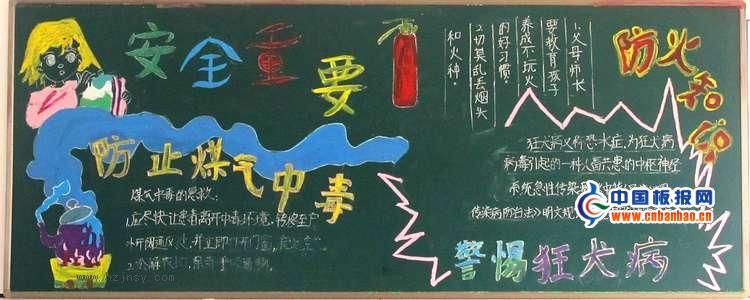 安全重要
防止煤气中毒
煤气中毒的急救:
1.应尽快让患者离开中毒环境,转移至户
外开阔通风处,并立即打开门窗,
2.
1.父母师长
要教育孩子
养成不玩火
的好习惯。
2.切莫乱丢烟头
和火种。
防火知识
狂犬病又称恐水症,为狂犬病
病毒引起的一种人畜共患的中枢神经
系统急性传染病
传染病防治法》明文规
警惕狂犬病
中国板报网
www.cnbanbao.cn